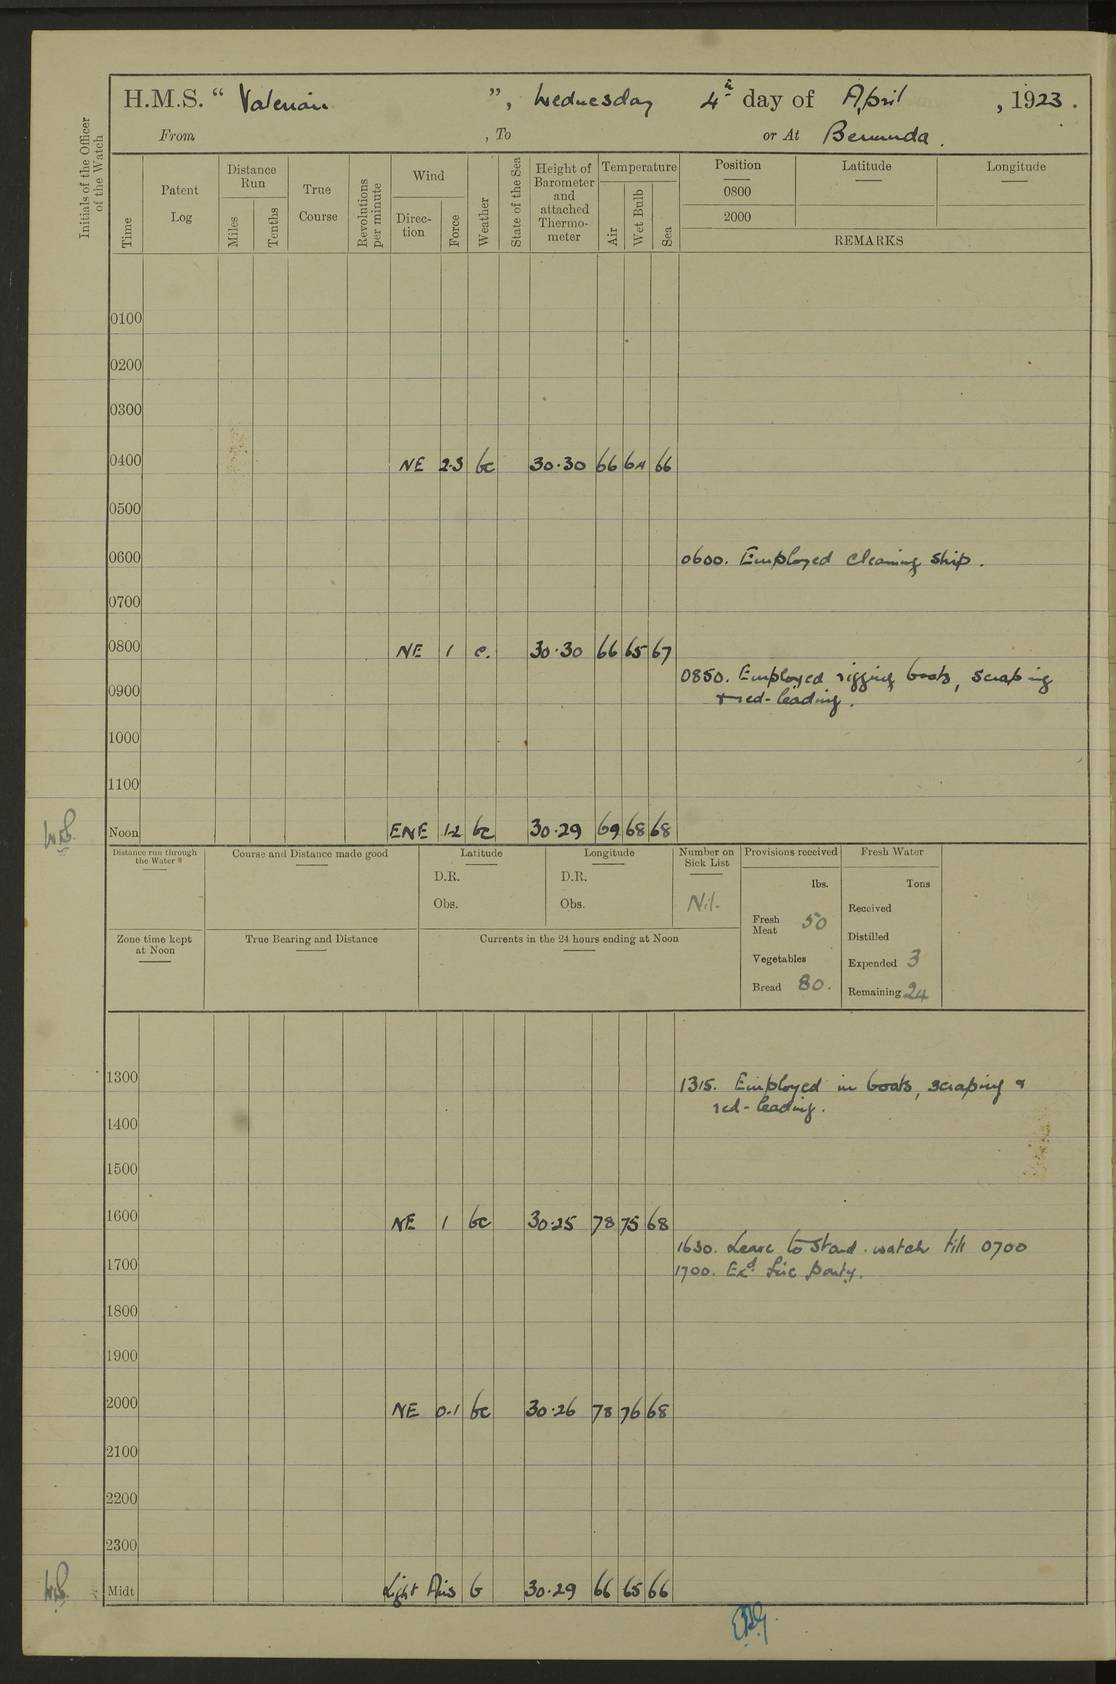 H.M.S. “ Valerian ”, Wednesday 4th day of April , 1923 .
From , To or At Bermuda .
Initials of the Officer of the Watch
Time
Patent Log
Distance Run
Miles
Tenths
True Course
Revolutions per minute
Wind
Direc-tion
Force
Weather
State of the Sea
Height of Barometer and attached Thermo-meter
Temperature
Air
Wet Bulb
Sea
Position Latitude Longitude
0800
2000
REMARKS
0100
0200
0300
0400 NE 2·3 bc 30·30 66 64 66
0500
0600 0600. Employed cleaning ship.
0700
0800 NE 1 c. 30·30 66 65 67
0850. Employed rigging boats, scraping
0900 & red-leading.
1000
1100
Noon ENE 1·2 bc 30·29 69 68 68
Distance run through the Water*
Course and Distance made good
Latitude
D.R.
Obs.
Longitude
D.R.
Obs.
Number on Sick List
Nil.
Provisions received
lbs.
Fresh Meat 50
Vegetables
Bread 80.
Fresh Water
Tons
Received
Distilled
Expended 3
Remaining 24
Zone time kept at Noon
True Bearing and Distance
Currents in the 24 hours ending at Noon
1300 1315. Employed in boats, scraping &
red-leading.
1400
1500
1600 NE 1 bc 30·25 78 75 68
1630. Leave to stand. watch till 0700
1700 1700. Exd. fire party.
1800
1900
2000 NE 0·1 bc 30·26 78 76 68
2100
2200
2300
Midt Light Airs b 30·29 66 65 66